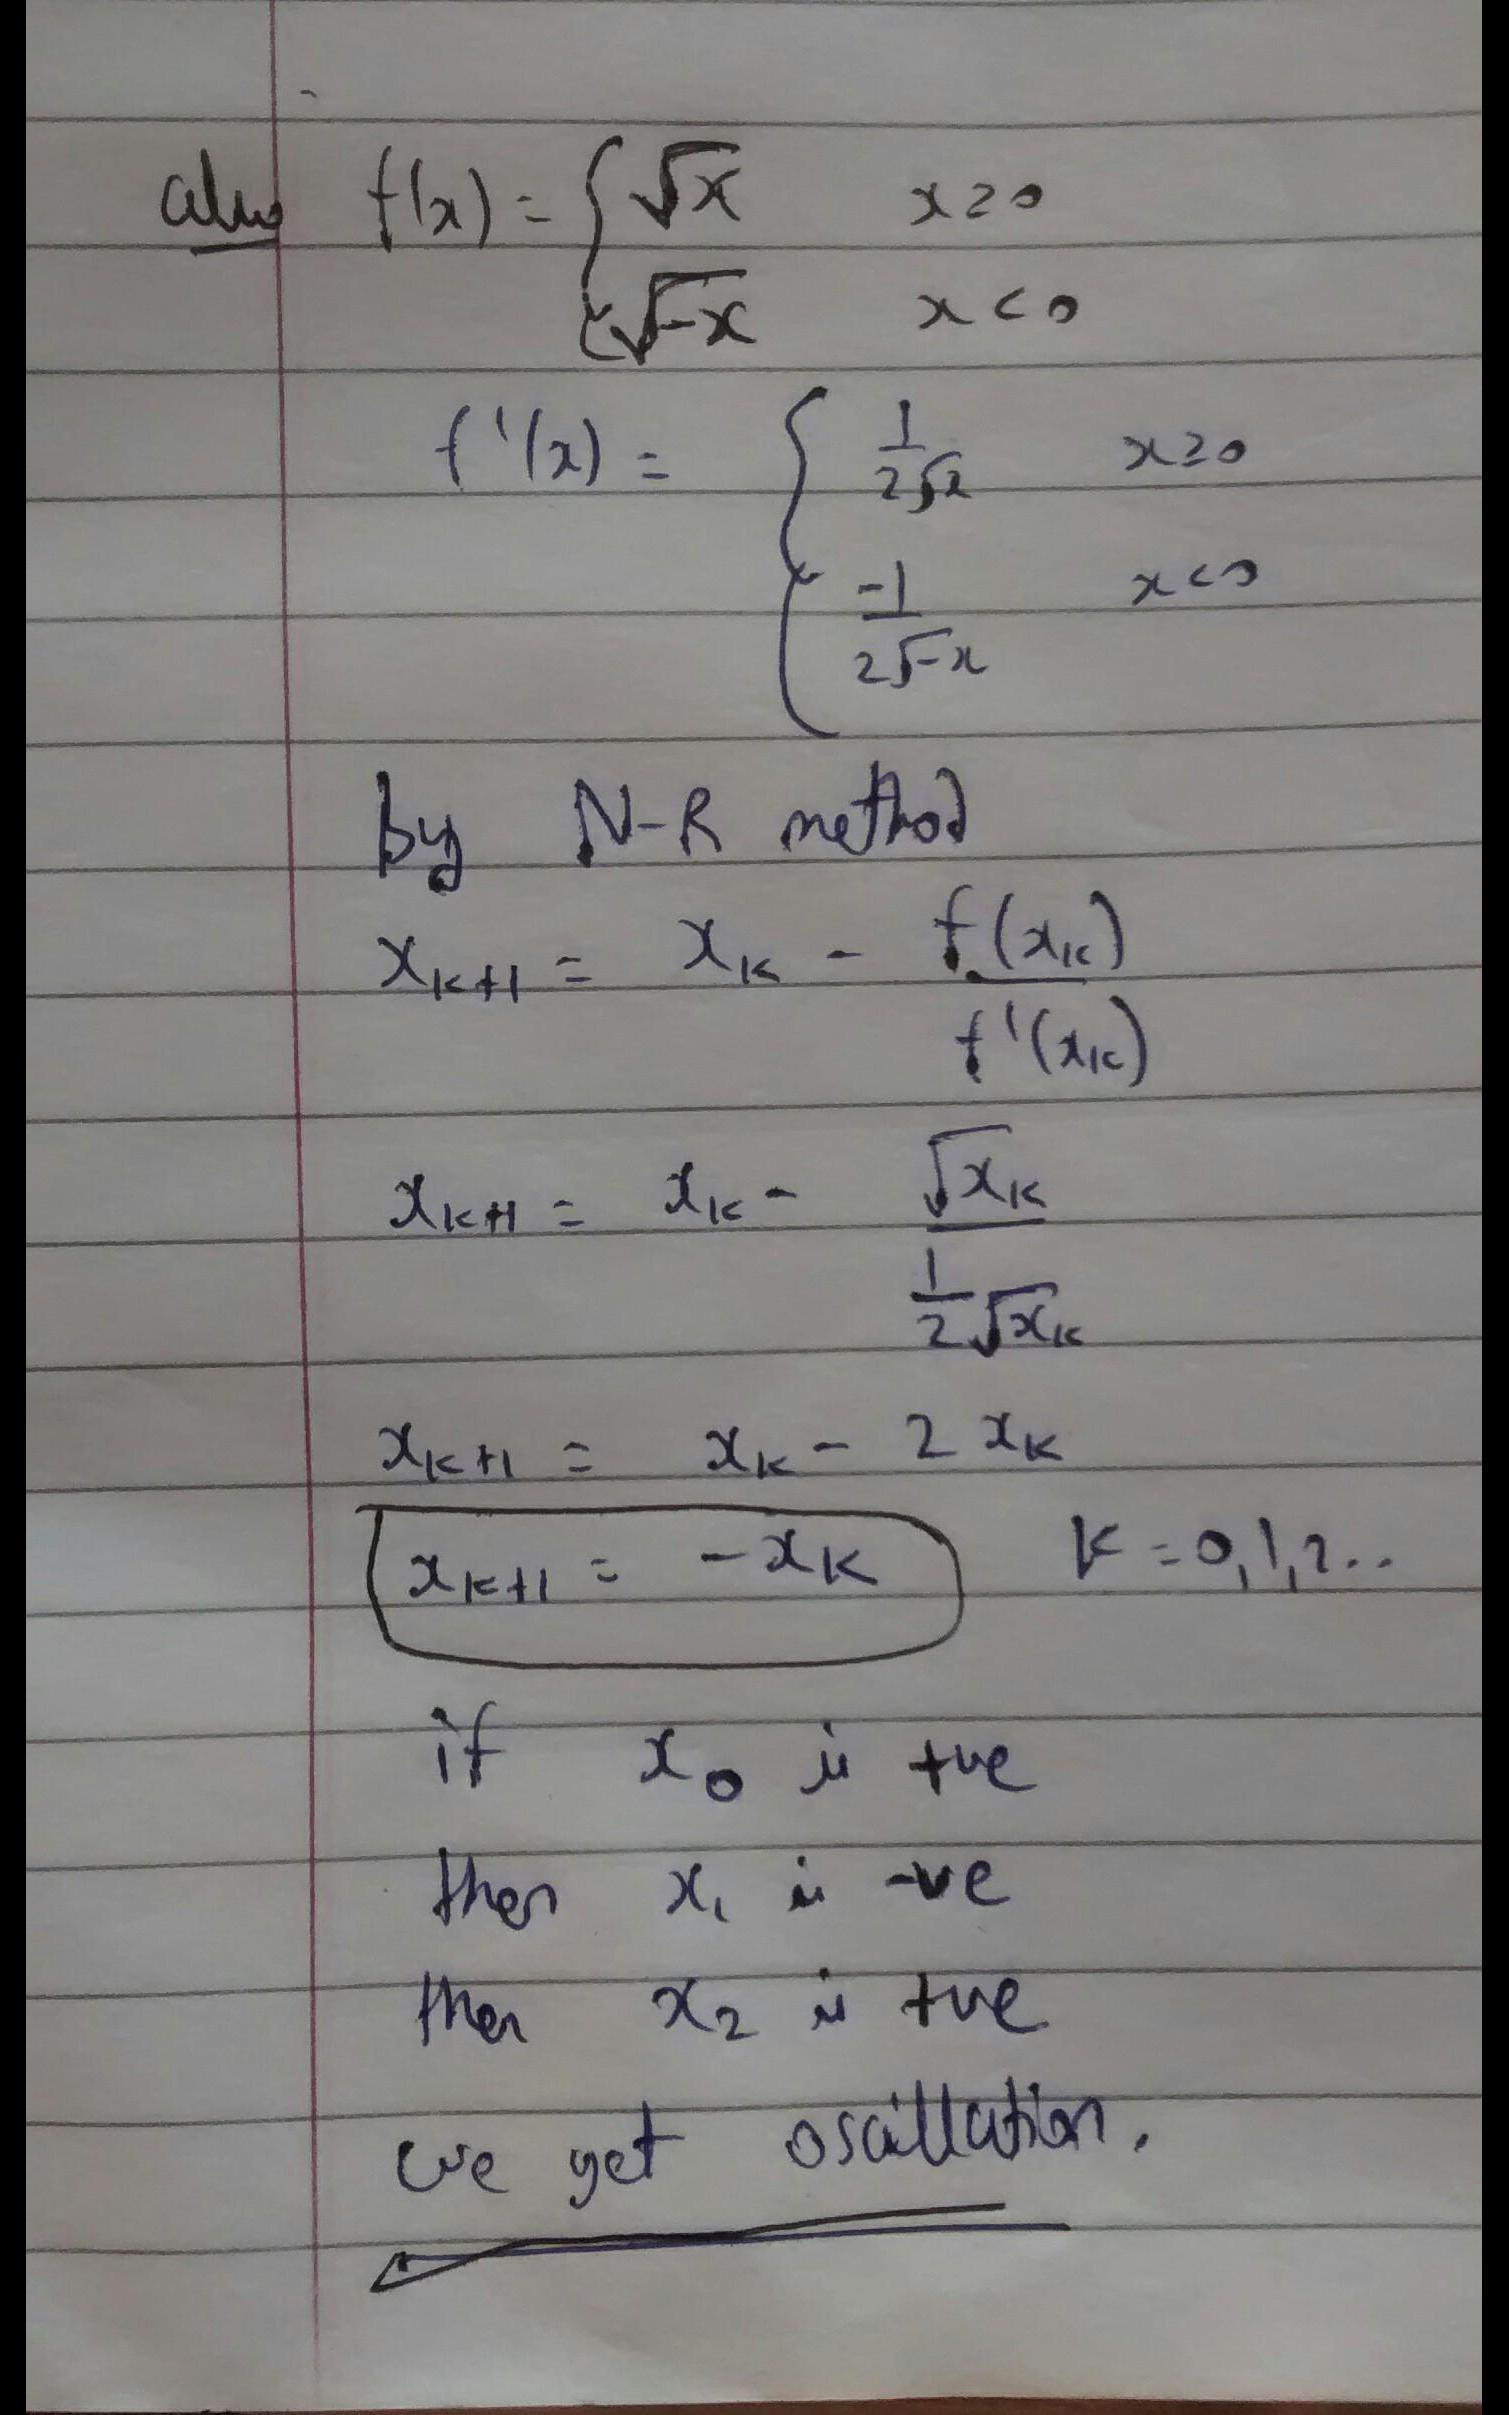 also f(x) = { √x x ≥ 0
√-x x < 0
f'(x) = { 1/2√x x ≥ 0
-1/2√-x x < 0
by N-R method
xₖ₊₁ = xₖ - f(xₖ)/f'(xₖ)
xₖ₊₁ = xₖ - √xₖ / 1/2√xₖ
xₖ₊₁ = xₖ - 2 xₖ
xₖ₊₁ = -xₖ K = 0,1,2..
if x₀ is +ve
then x₁ is -ve
then x₂ is +ve
we get oscillation.